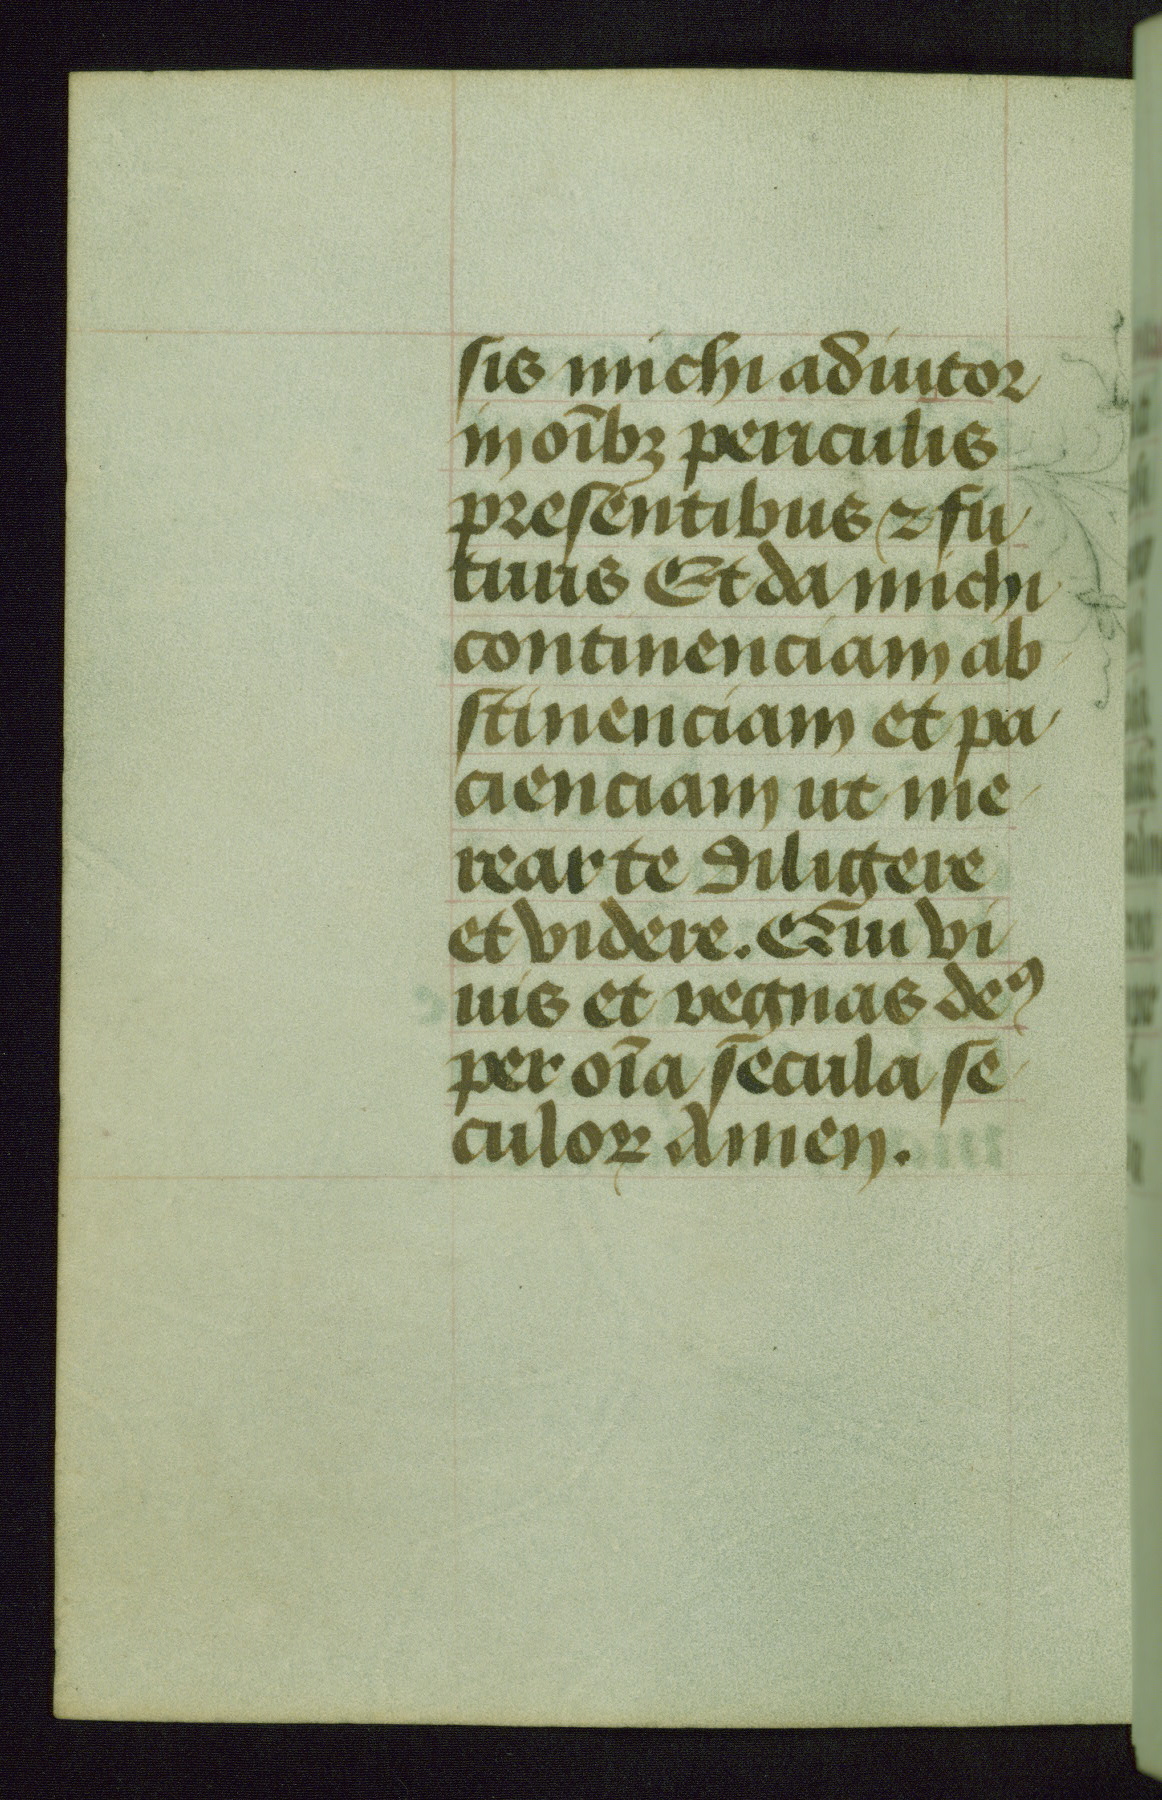 sis michi adiutor
in oībꝫ periculis
presentibus ⁊ fu
turis Et da michi
continenciam ab
stinenciam et pa
cienciam ut me
rear te diligere
et videre. Qui vi
uis et regnas deꝰ
per oīa secula se
culoꝝ Amen.